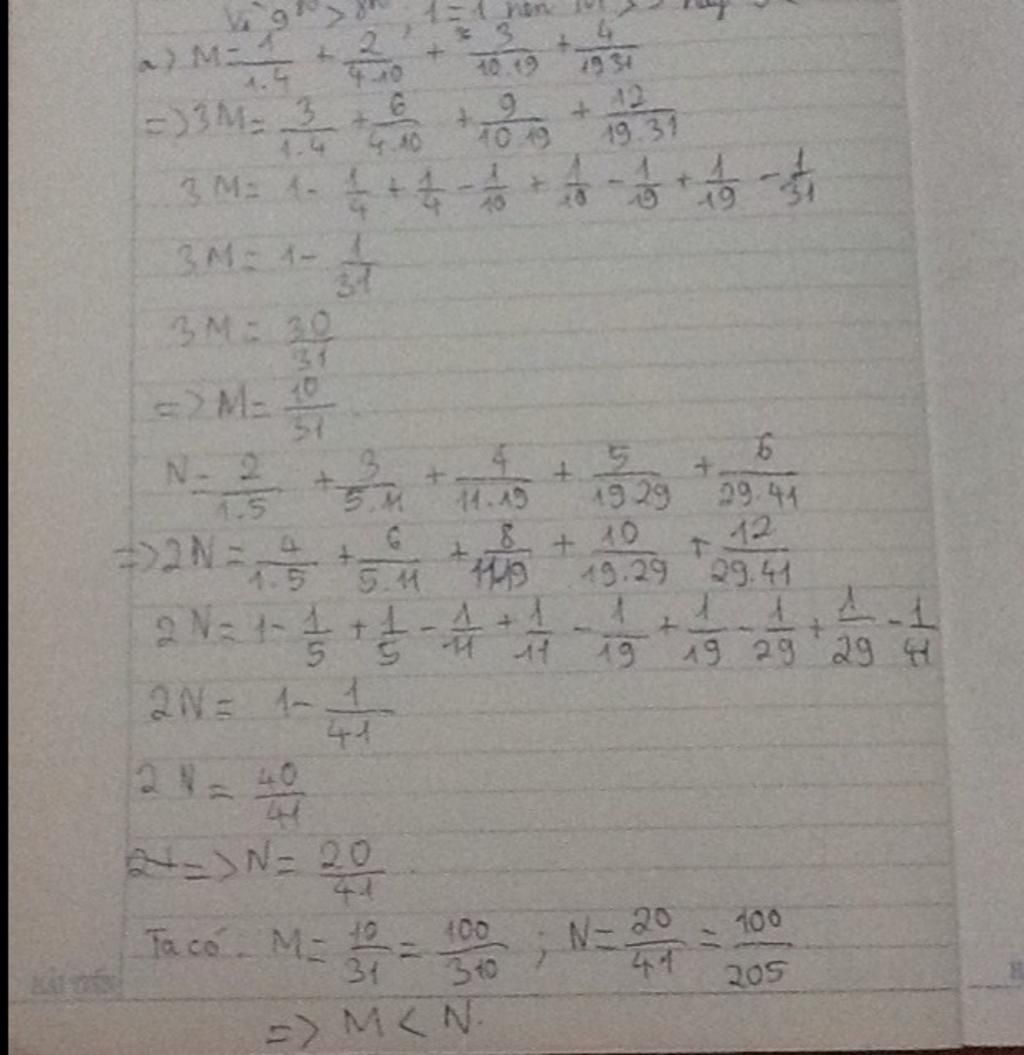 Vì 9 > 8 , 1 = 1 nên
a) M = 1/1.4 + 2/4.10 + 3/10.19 + 4/19.31
=> 3M = 3/1.4 + 6/4.10 + 9/10.19 + 12/19.31
3M = 1 - 1/4 + 1/4 - 1/10 + 1/10 - 1/19 + 1/19 - 1/31
3M = 1 - 1/31
3M = 30/31
=> M = 10/31
N = 2/1.5 + 3/5.11 + 4/11.19 + 5/19.29 + 6/29.41
=> 2N = 4/1.5 + 6/5.11 + 8/11.19 + 10/19.29 + 12/29.41
2N = 1 - 1/5 + 1/5 - 1/11 + 1/11 - 1/19 + 1/19 - 1/29 + 1/29 - 1/41
2N = 1 - 1/41
2N = 40/41
=> N = 20/41
Ta có: M = 10/31 = 100/310 ; N = 20/41 = 100/205
=> M < N.